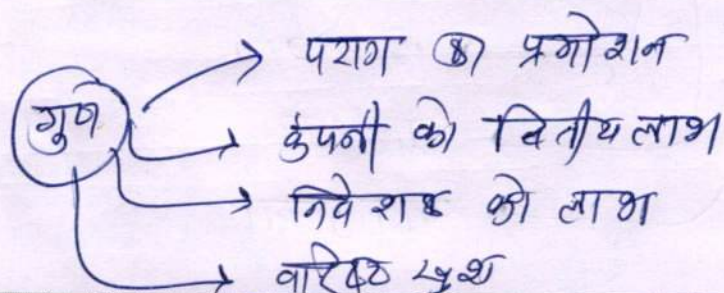 गुण
पराग का प्रमोशन
कंपनी को वित्तीय लाभ
निवेशक को लाभ
वरिष्ठ खुश